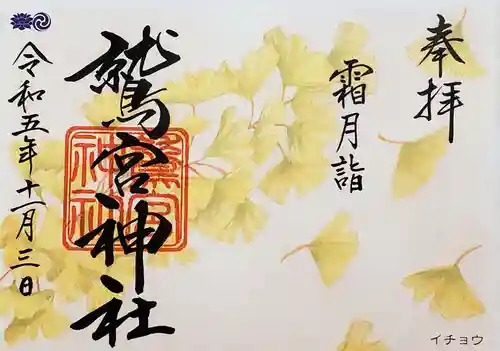 奉拝
霜月詣
鷲宮神社
鷲宮神社
令和五年十一月三日
イチョウ